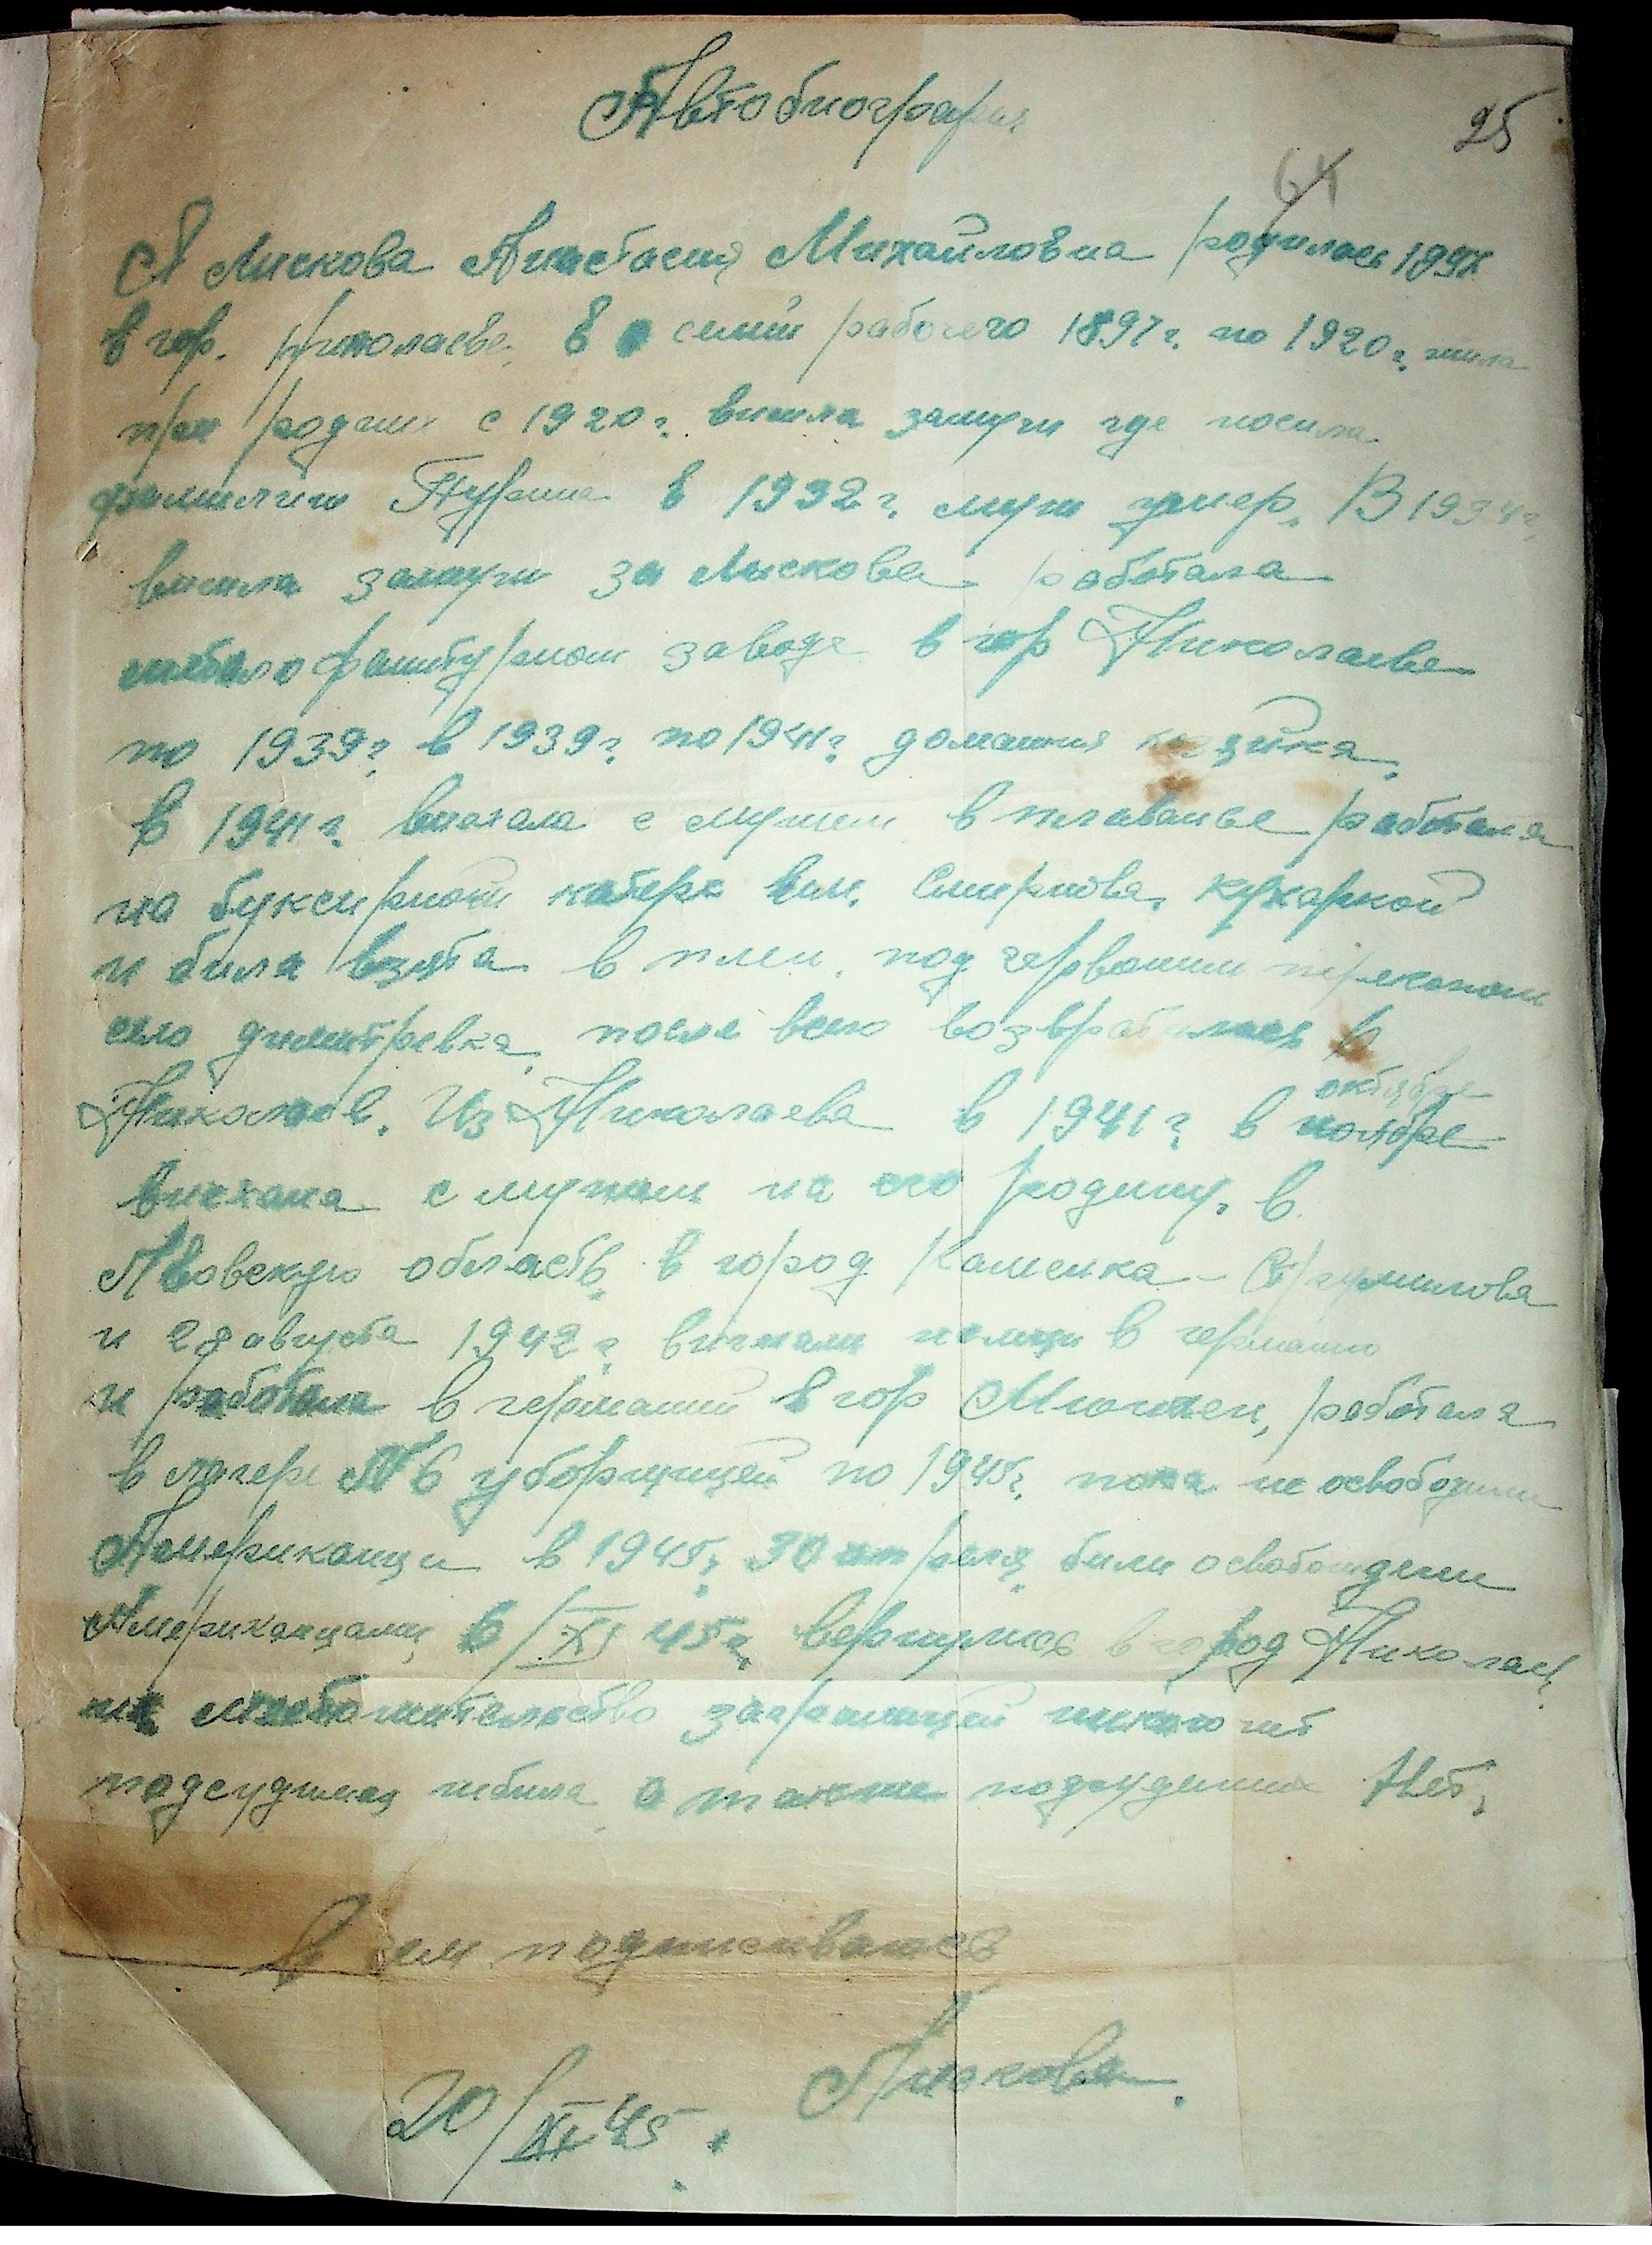 Автобиография
25
64
Я Лискова Анастасия Михайловна родилась 1897
в гор. Николаеве, в семии рабочего 1897 г. по 1920 г. жила
при родине с 1920 г. вишла замуги где носила
фамилию в 1932 г. муж умер. В 1934 г.
вишла замуги за Лискова работала
заводе в гор Николаеве
по 1939 г. в 1939 г. по 1941 г. домашня хазяйка.
в 1941 г. виехала с мужем в плаванье работала
на буксирном катере им. Смирнова, кухаркой
и била взята в плен, под червоним перекопом
село димитревка, после всего возвратилась в
Николаев. Из Николаева в 1941 г. в ноябре
октябре
виехала с мужом на его родину, в
Львовскую область, в город Каменка - Струмилова
и 28 августа 1942 г. вигнали немци в германию
и работала в германии в гор Мюнхен, работала
в лагере № 6 уборщицей по 1945 г. пока не освободили
Американци в 1945 г. 30 апреля били освобождени
Американцами, в /XI 45 г. вернулися в город Николаев,
на местожительство заграницей никого нет
подсудимая небила а также подсудимих Нет.
В чем подписиваюсь
Лискова.
20/XI 45.